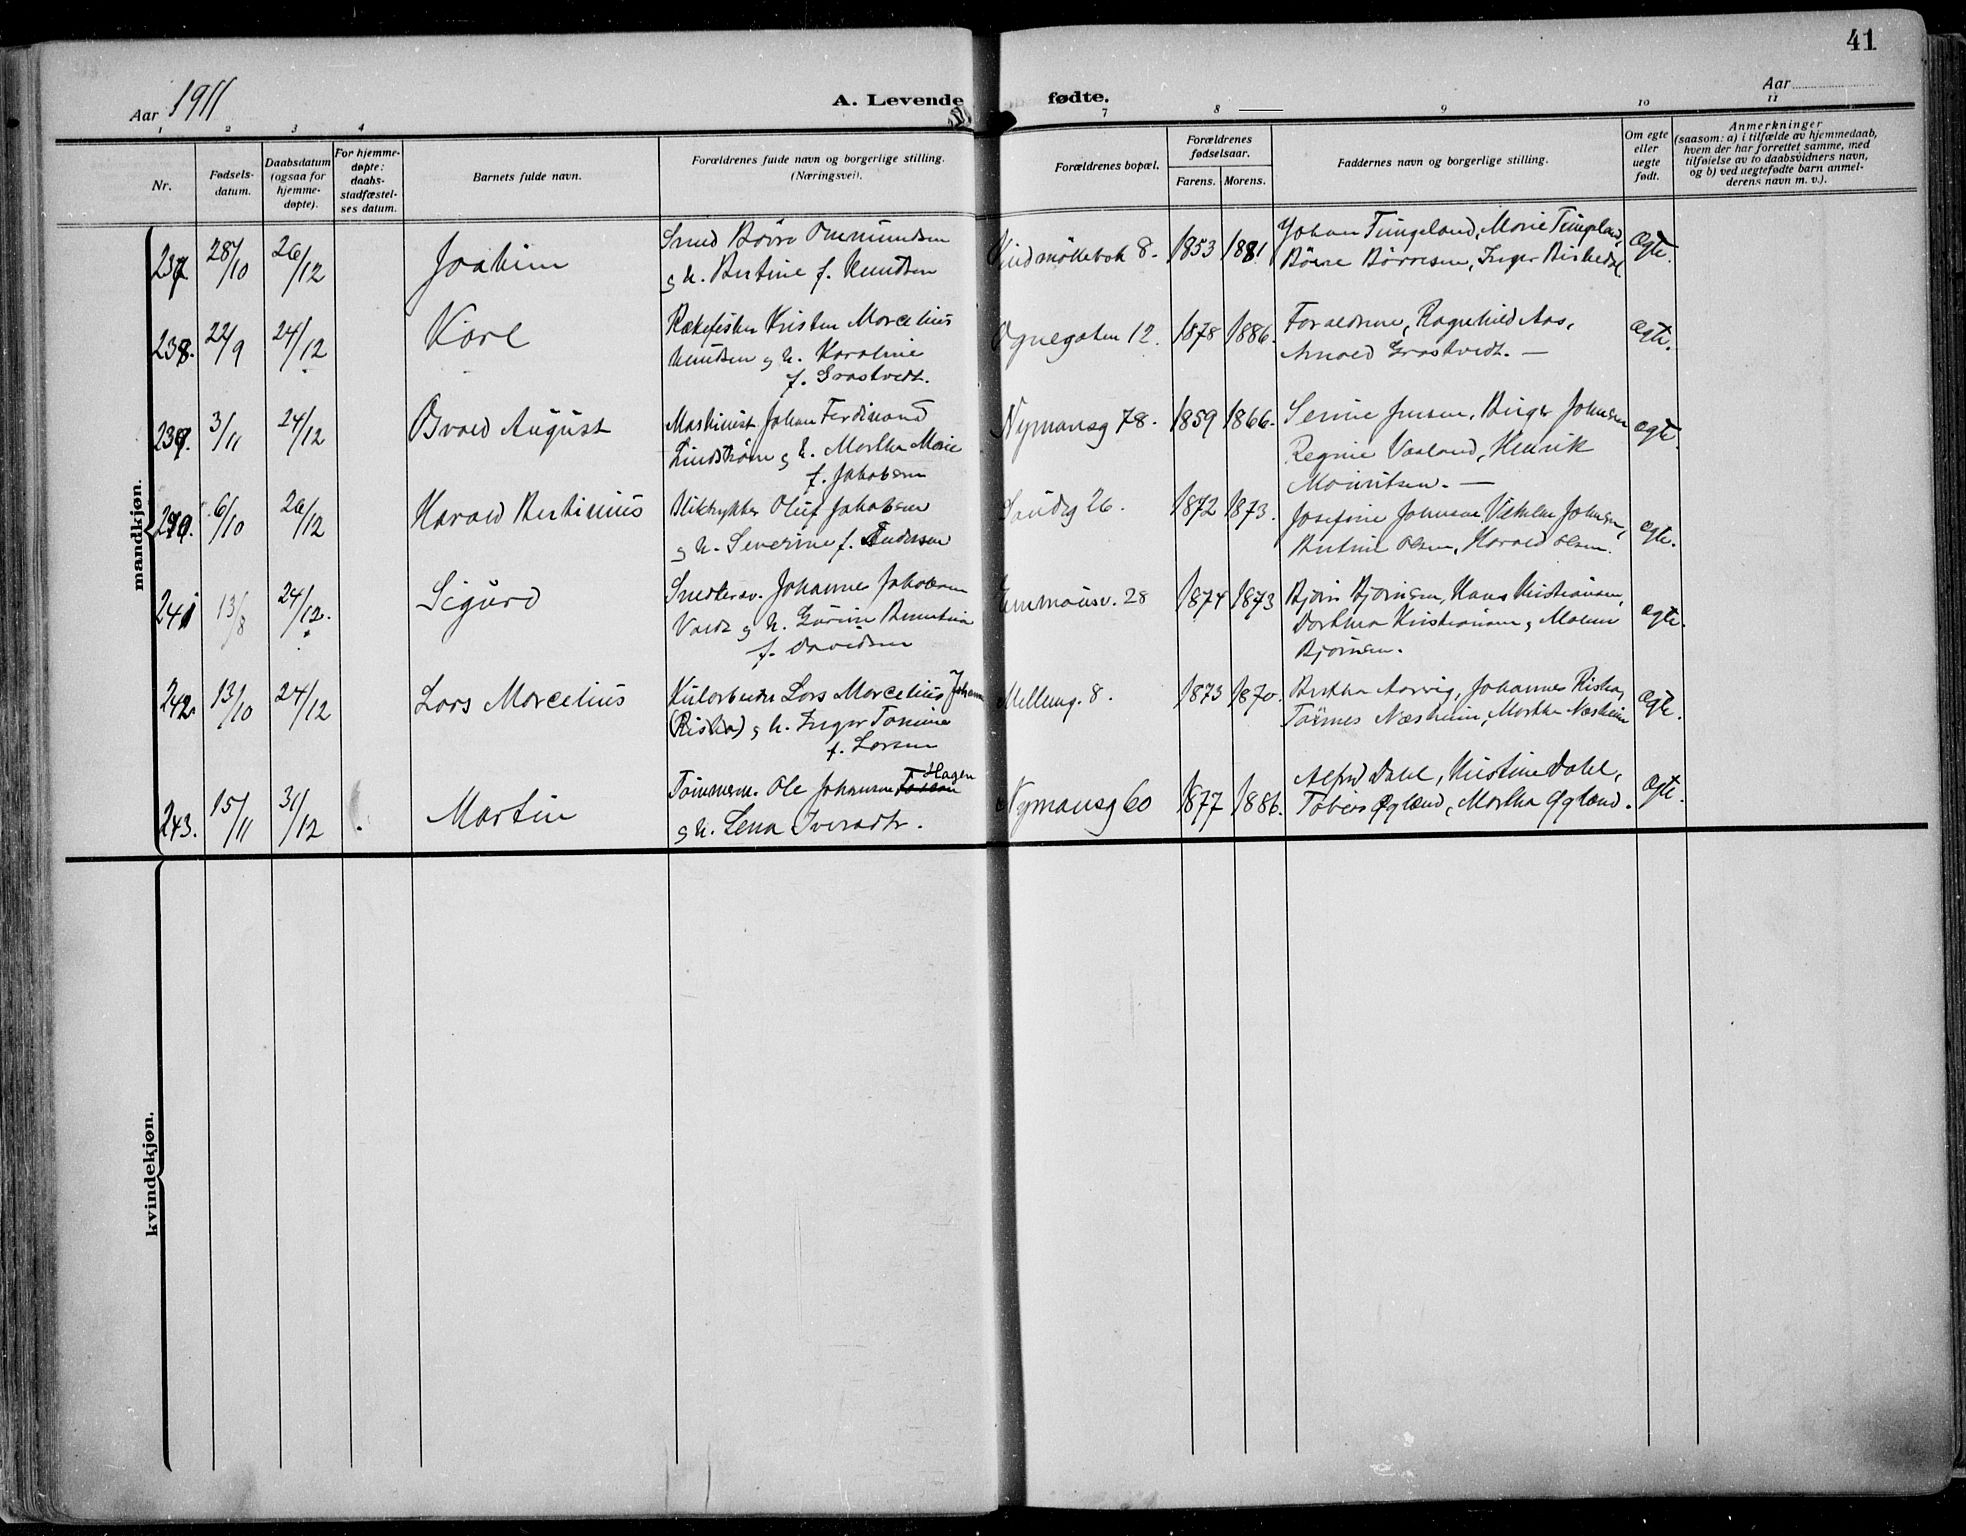 41
Aar 1911
A. Levende fødte.
Aar
1 2 3 4 7 8 9 10 11
Nr.
Fødsels-
datum.
Daabsdatum
(ogsaa for
hjemme-
døpte).
For hjemme-
døpte:
daabs-
stadfæstel-
ses datum.
Barnets fulde navn.
Forældrenes fulde navn og borgerlige stilling.
(Næringsvei).
Forældrenes bopæl.
Forældrenes
fødselsaar.
Farens. Morens.
Faddernes navn og borgerlige stilling.
Om egte
eller
uegte
født.
Anmerkninger
(saasom: a) i tilfælde av hjemmedaab,
hvem der har forrettet samme, med
tilføielse av to daabsvidners navn,
og b) ved uegtefødte barn anmel-
derens navn m. v.).
mandkjøn.
237 28/10 26/12 Joakim
Smed Børre Ommundsen
og h. Bertine f. Knudsen
Vindmøllebak 8. 1853 1881
Johan Tungeland, Marie Tungeland,
Børre Børresen, Inger
egte.
238. 22/9 24/12 Kåre
Rækefisker Kristen Marcelius
Knudsen og h. Karoline
f. Grastvedt.
Ognegaten 12. 1878 1886.
Forældrene, Ragnhild Aas,
Arnold Grastvedt. —
egte.
239. 3/11 24/12 Osvald August
Maskinist Johan Ferdinand
Lindstrøm og h. Martha Marie
f. Jakobsen
Nymansg 78. 1859 1866.
Serine Jensen, Birger Johnsen
Regine Vaaland, Henrik
Mauritsen. —
egte.
240. 6/10 26/12 Harald Bertinius
Bliktrykker Oluf Jakobsen
og h. Severine f. Andersen
Sandsg 26. 1872 1873.
Josefine Johnsen, Vilhelm Johnsen,
Bertine Olsen, Harald Olsen.
egte.
241 13/8 24/12. Sigurd
Snedkersv. Johannes Jakobsen
og h. Gurine
f. Davidsen
Emmausv. 28 1874 1873
Bjørn Bjørnsen, Hans Kristiansen,
Dorthea Kristiansen og Malene
Bjørnsen.
egte.
242. 13/10 24/12 Lars Marcelius
Kularbeider Lars Marcelius Johans.
(Riska) og h. Inger Tomine
f. Larsen
Mølleng. 8. 1873 1870.
Bertha Aarvig, Johannes Riska,
Tønnes Næsheim, Martha Næsheim
egte.
243. 15/11 31/12 Martin
Hagen
Tømmerm. Ole Johansen
og h. Lena Iversdtr.
Nymansg 60 1877 1886.
Alfred Dahl, Kristine Dahl,
Tobias Øgland, Martha Øgland.
egte.
kvindekjøn.